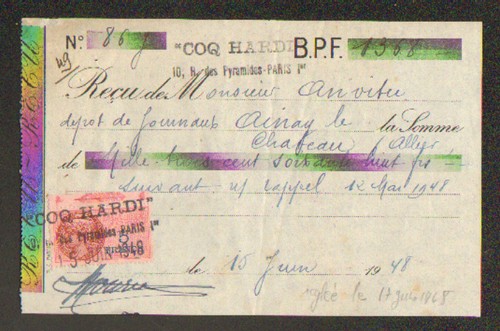 N° 867 "COQ HARDI" B.P.F. 1368
10, R. des Pyramides-PARIS 1er
Reçu de Monsieur Anvitu
depot de Journaux Ainay le la Somme
Chateau Allier
de Mille trois cent soixante huit frs
suivant n/ rappel 12 Mai 1948
"COQ HARDI"
des Pyramides-PARIS 1er
5 JUIN 1948
le 15 Juin 1948
le 17 juin 1948